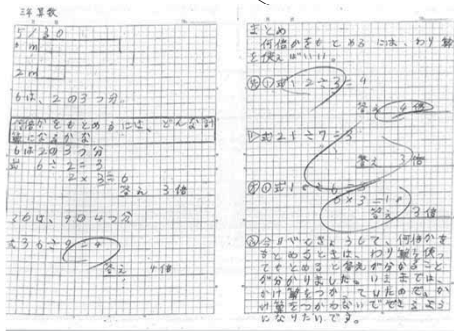 三年 算数
5/30
6m
2m
6は、2の3つ分。
何倍かをもとめるには、どんな計
算になるかな
6は2の3つ分
式 6÷2=3
2×3=6
答え 3倍
36は、9の4つ分
式36÷9=4
答え 4倍
まとめ
何倍かをもとめるには、わり算
を使えばいい。
①式12÷3=4
答え 4倍
式21÷7=3
答え 3倍
6×3=18
答え 3倍
何倍かを
もとめるときは、わり算を使っ
てもとめると答えが分かること
が分かりました。いままでは
かけ算をつかっていたので、か
け算をつかわないでできるよう
になりたいです。